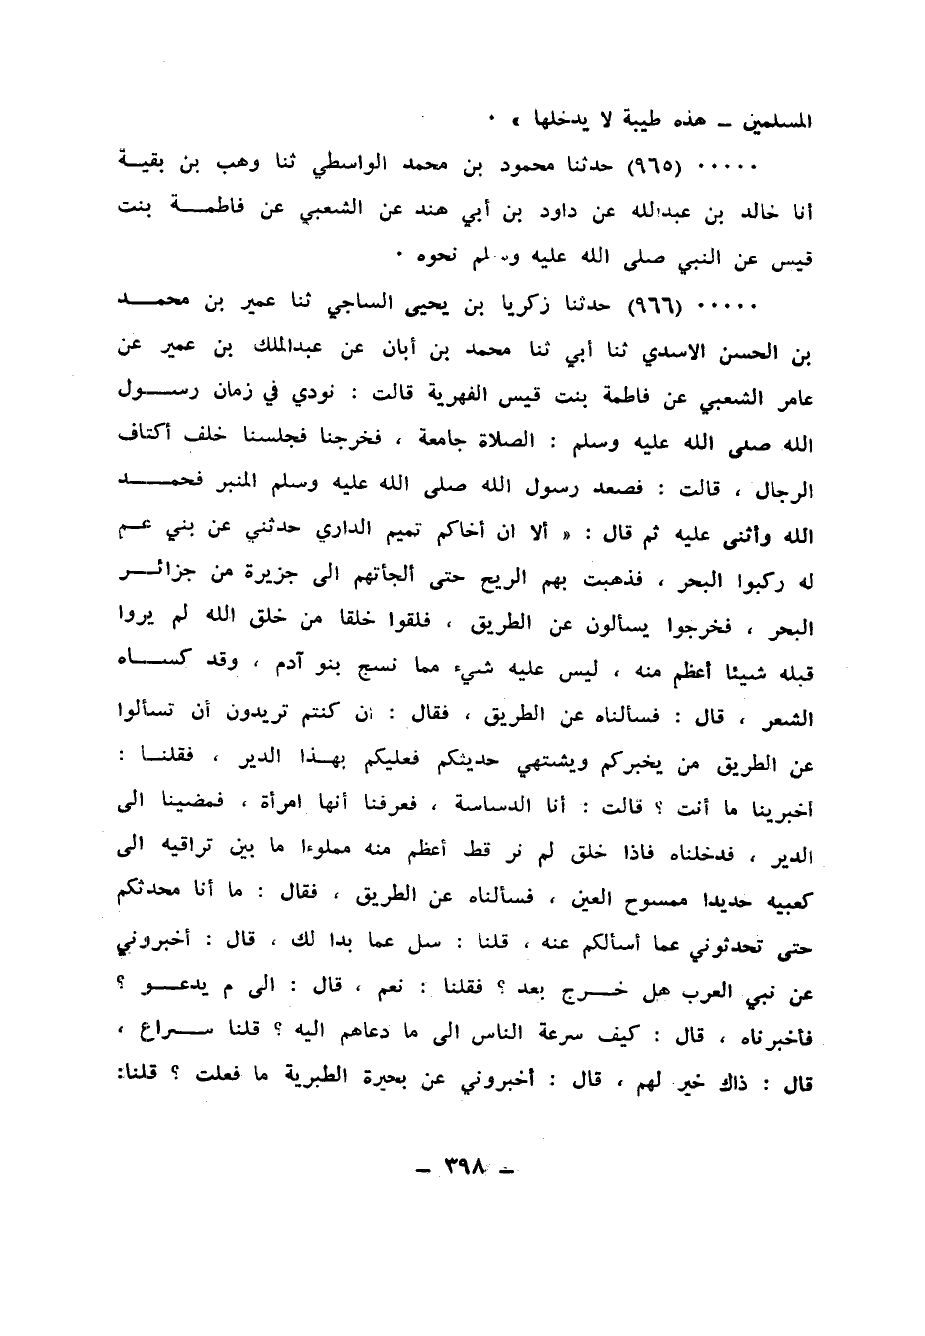 المسلمين ـ هذه طيبة لا يدخلها » ٠
٠٠٠٠٠ (٩٦٥) حدثنا محمود بن محمد الواسطي ثنا وهب بن بقية
أنا خالد بن عبدالله عن داود بن أبي هند عن الشعبي عن فاطمــة بنت
قيس عن النبي صلى الله عليه وسلم نحوه ٠
٠٠٠٠٠ (٩٦٦) حدثنا زكريا بن يحيى الساجي ثنا عمير بن محمــد
بن الحسن الاسدي ثنا أبي ثنا محمد بن أبان عن عبدالملك بن عمير عن
عامر الشعبي عن فاطمة بنت قيس الفهرية قالت : نودي في زمان رســول
الله صلى الله عليه وسلم : الصلاة جامعة ، فخرجنا فجلسنا خلف أكتاف
الرجال ، قالت : فصعد رسول الله صلى الله عليه وسلم المنبر فحمــد
الله وأثنى عليه ثم قال : « ألا ان أخاكم تميم الداري حدثني عن بني عــم
له ركبوا البحر ، فذهبت بهم الريح حتى ألجأتهم الى جزيرة من جزائــر
البحر ، فخرجوا يسألون عن الطريق ، فلقوا خلقا من خلق الله لم يروا
قبله شيئا أعظم منه ، ليس عليه شيء مما نسج بنو آدم ، وقد كســاه
الشعر ، قال : فسألناه عن الطريق ، فقال : ان كنتم تريدون أن تسألوا
عن الطريق من يخبركم ويشتهي حديثكم فعليكم بهــذا الدير ، فقلنــا :
أخبرينا ما أنت ؟ قالت : أنا الدساسة ، فعرفنا أنها امرأة ، فمضينا الى
الدير ، فدخلناه فاذا خلق لم نر قط أعظم منه مملوءا ما بين تراقيه الى
كعبيه حديدا ممسوح العين ، فسألناه عن الطريق ، فقال : ما أنا محدثكم
حتى تحدثوني عما أسألكم عنه ، قلنا : سل عما بدا لك ، قال : أخبروني
عن نبي العرب هل خــرج بعد ؟ فقلنا : نعم ، قال : الى م يدعــو ؟
فأخبرناه ، قال : كيف سرعة الناس الى ما دعاهم اليه ؟ قلنا ســراع ،
قال : ذاك خير لهم ، قال : أخبروني عن بحيرة الطبرية ما فعلت ؟ قلنا:
ـ ٣٩٨ ـ